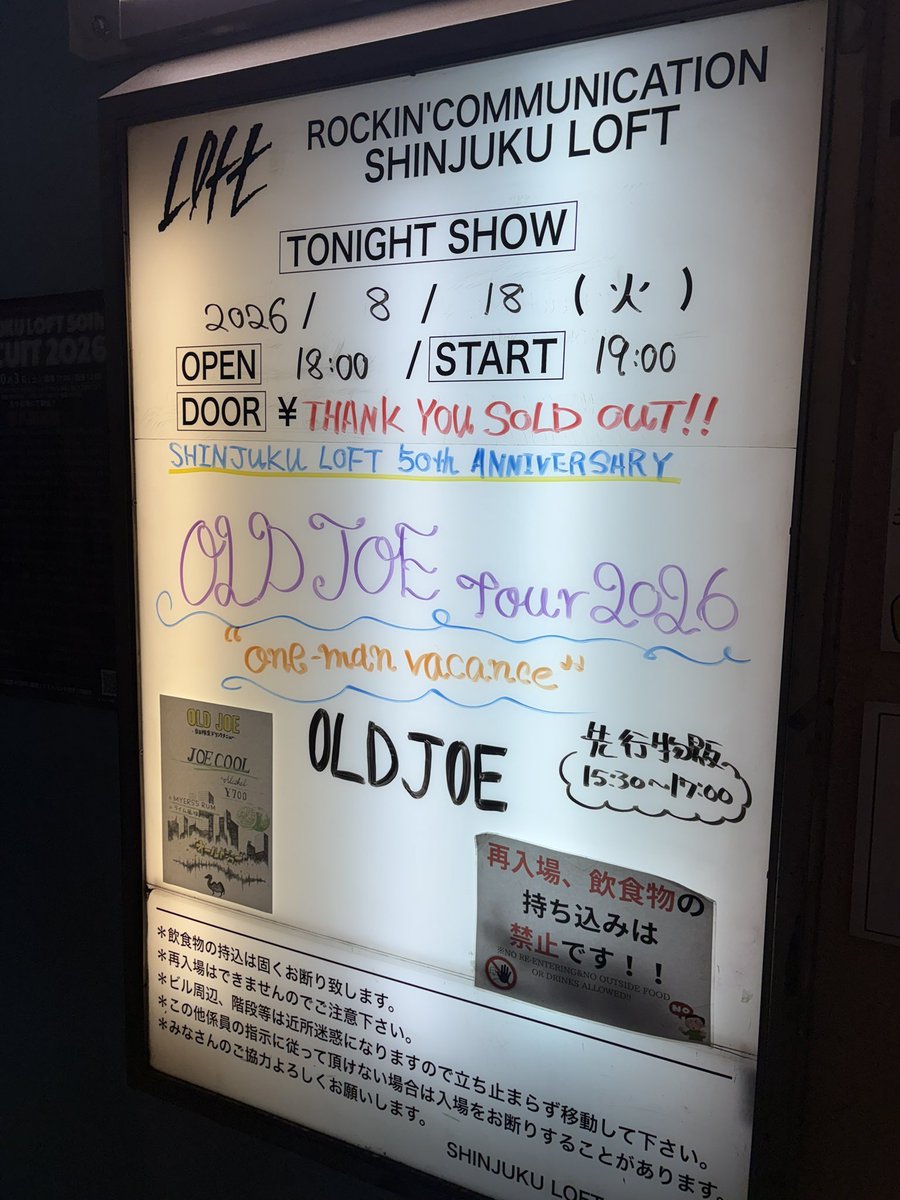 LOFT
ROCKIN'COMMUNICATION
SHINJUKU LOFT
TONIGHT SHOW
2026 / 8 / 18 (火)
OPEN 18:00 / START 19:00
DOOR ¥ THANK YOU SOLD OUT!!
SHINJUKU LOFT 50th ANNIVERSARY
OLD JOE Tour 2026
"one-man vacance"
OLD JOE
先行物販
15:30~17:00
OLD JOE
JOE COOL
¥700
MYERS'S RUM
再入場、飲食物の
持ち込みは
禁止です！！
※NO RE-ENTERING&NO OUTSIDE FOOD
OR DRINKS ALLOWED!!
NO
＊飲食物の持込は固くお断り致します。
＊再入場はできませんのでご注意下さい。
＊ビル周辺、階段等は近所迷惑になりますので立ち止まらず移動して下さい。
＊この他係員の指示に従って頂けない場合は入場をお断りすることがあります。
＊みなさんのご協力よろしくお願いします。
SHINJUKU LOFT